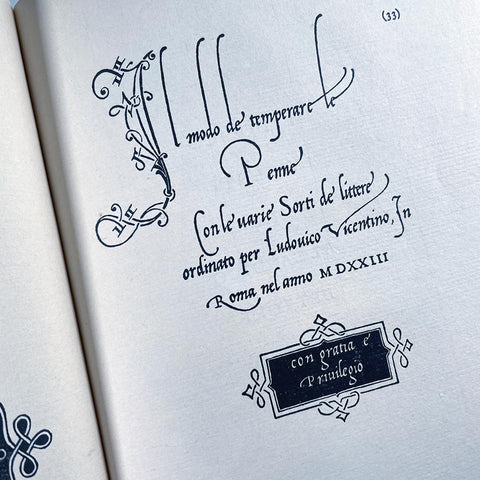 (33)
Il modo de temperare le
Penne
Con le uarie Sorti de littere
ordinato per Ludouico Vicentino, In
Roma nel anno MDXXIII
con gratia e
Priuilegio